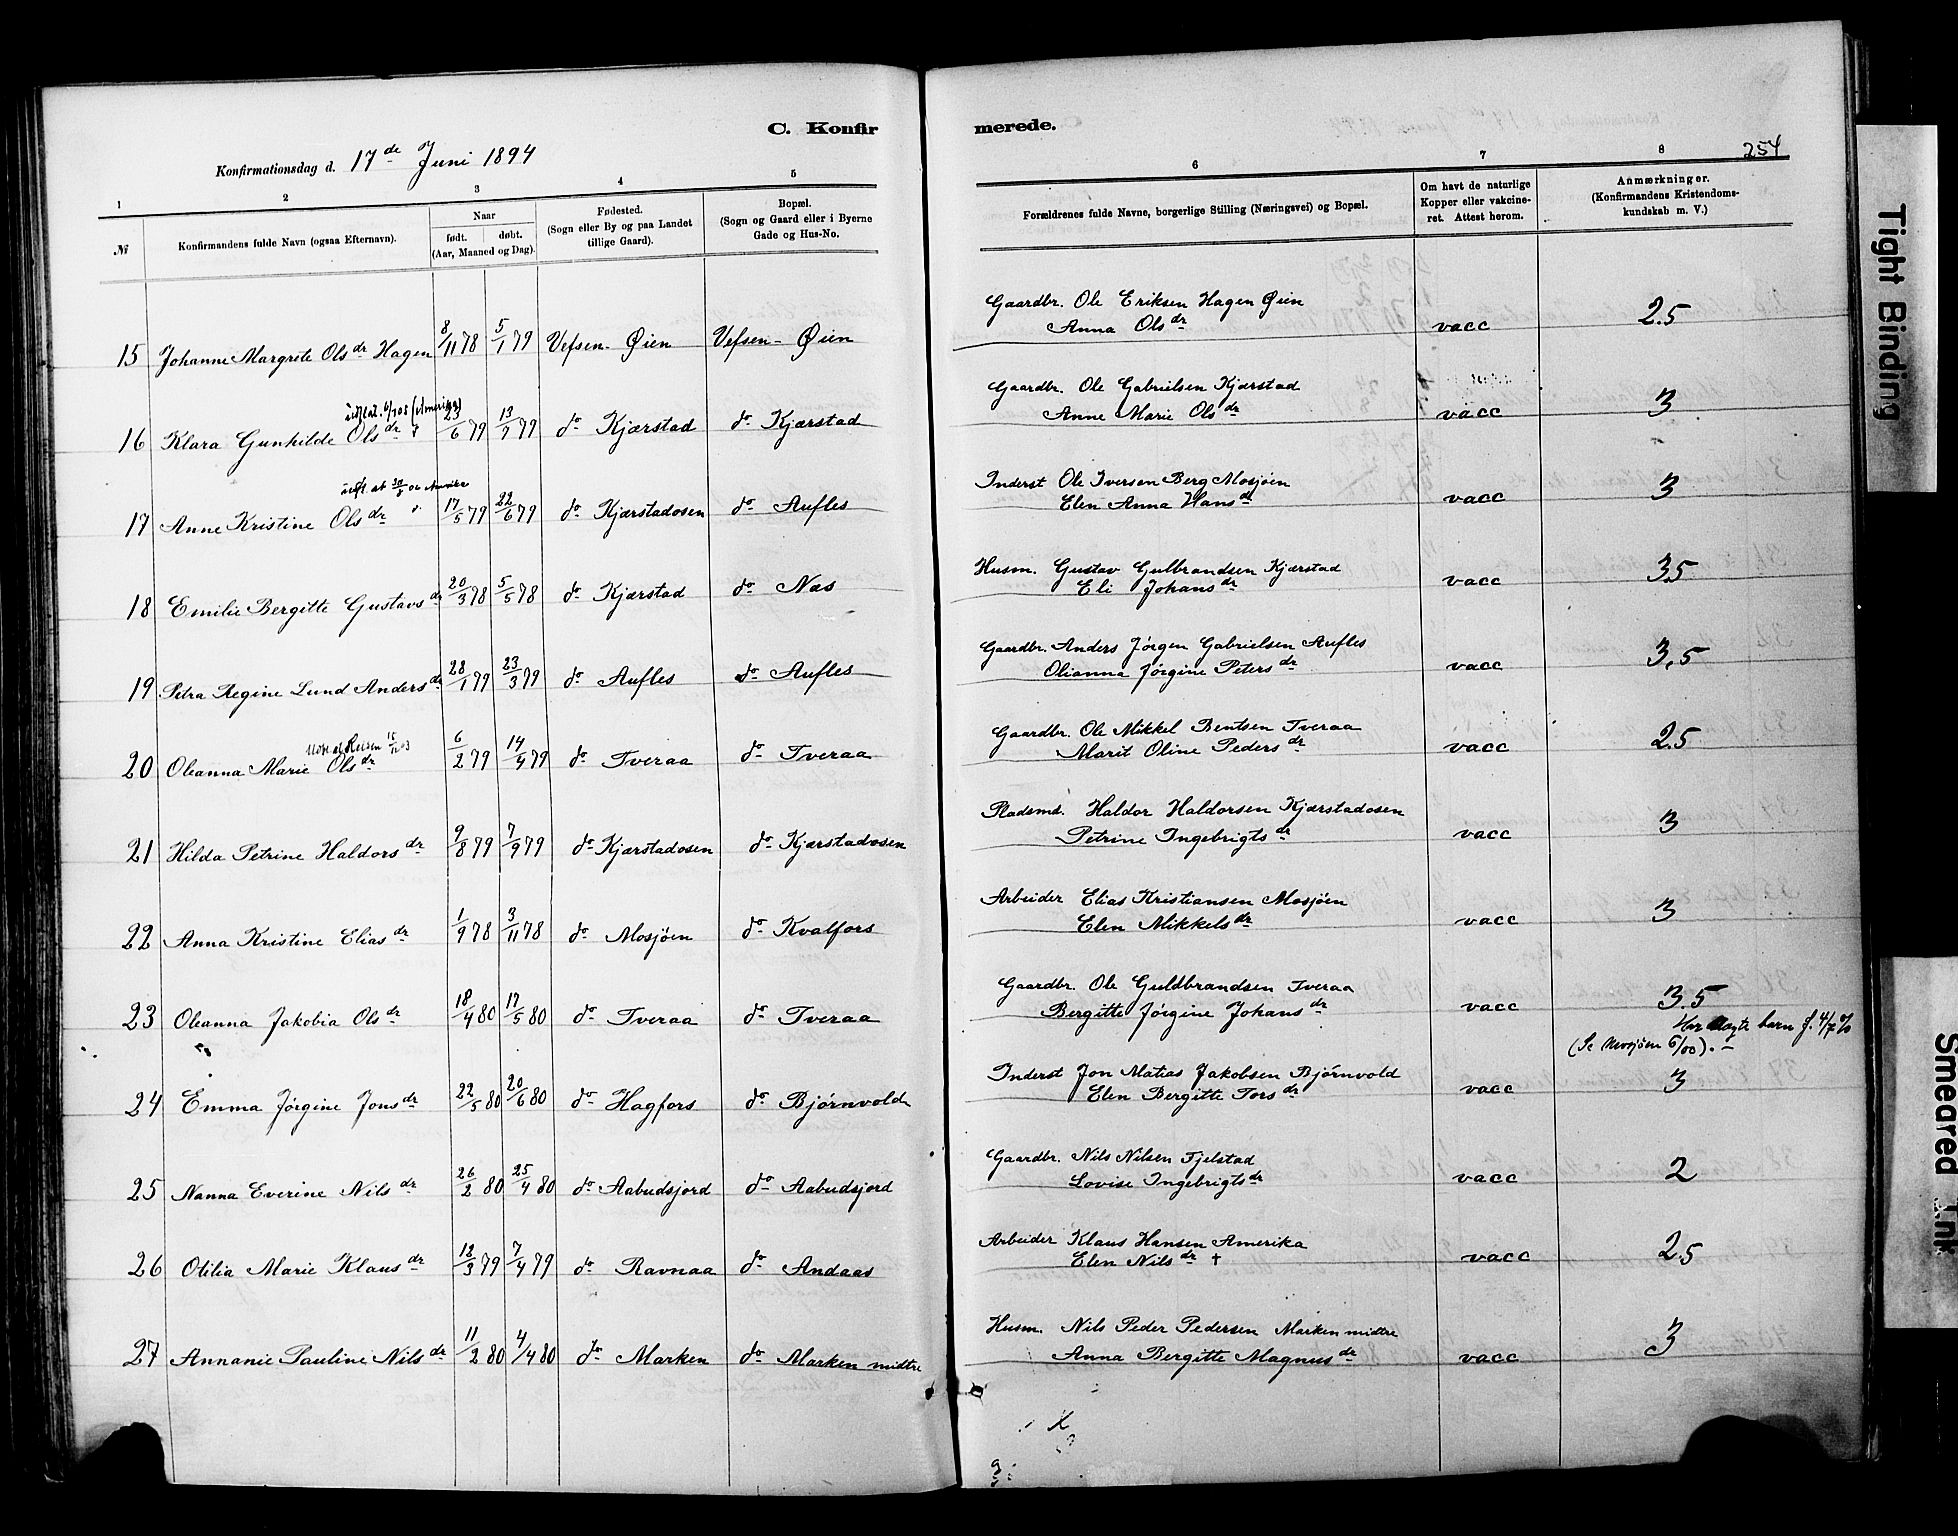 C. Konfirmerede.
Konfirmationsdag d. 17de Juni 1894
254
1 2 3 4 5 6 7 8
№ Konfirmandens fulde Navn (ogsaa Efternavn). Naar født. døbt. (Aar, Maaned og Dag). Fødested. (Sogn eller By og paa Landet tillige Gaard). Bopæl. (Sogn og Gaard eller i Byerne Gade og Hus-No. Forældrenes fulde Navne, borgerlige Stilling (Næringsvei) og Bopæl. Om havt de naturlige Kopper eller vakcineret. Attest herom. Anmærkninger. (Konfirmandens Kristendomskundskab m. V.)
15 Johanne Margrete Olsdr Hagen 8/11 78 5/1 79 Vefsen- Øien Vefsen- Øien Gaardbr. Ole Eriksen Hagen Øien vacc 2.5
Anna Olsdr
16 Klara Gunhilde Olsdr 23/6 79 13/7 79 do Kjærstad do Kjærstad Gaardbr. Ole Gabrielsen Kjærstad vacc 3
Anne Marie Olsdr
17 Anne Kristine Olsdr 17/5 79 22/6 79 do Kjærstadosen do Aufles Inderst Ole Iversen Berg Mosjøen vacc 3
Elen Anna Hansd
18 Emilie Bergitte Gustavsdr 20/3 78 5/5 78 do Kjærstad do Næs Husm. Gustav Gulbrandsen Kjærstad vacc 3.5
Eli Johansdr
19 Petra Regine Lund Andersdr 28/1 79 23/3 79 do Aufles do Aufles Gaardbr. Anders Jørgen Gabrielsen Aufles vacc 3,5
Olianna Jørgine Petersdr
20 Oleanna Marie Olsdr 6/2 79 14/4 79 do Tveraa do Tveraa Gaardbr. Ole Mikkel Bentsen Tveraa vacc 2.5
Marit Oline Pedersdr
21 Hilda Petrine Haldorsdr 9/8 79 7/9 79 do Kjærstadosen do Kjærstadosen Pladsmd. Haldor Haldorsen Kjærstadosen vacc 3
Petrine Ingebrigtsdr
22 Anna Kristine Eliasdr 1/9 78 3/11 78 do Mosjøen do Kvalfors Arbeider Elias Kristiansen Mosjøen vacc 3
Elen Mikkelsdr
23 Oleanna Jakobia Olsdr 18/4 80 17/5 80 do Tveraa do Tveraa Gaardbr. Ole Guldbrandsen Tveraa vacc 3.5
Bergitte Jørgine Johansdr
(Se Mosjøen 6/00). -
24 Emma Jørgine Jonsdr 22/5 80 20/6 80 do Hagfors do Bjørnvold Inderst Jon Matias Jakobsen Bjørnvold vacc 3
Elen Bergitte Torsdr
25 Nanna Everine Nilsdr 26/2 80 25/4 80 do Aabudsjord do Aabudsjord Gaardbr. Nils Nilsen Fjelstad vacc 2
Lovise Ingebrigtsdr
26 Otilia Marie Klausdr 12/3 79 7/4 79 do Ravnaa do Andaas Arbeider Klaus Hansen Amerika vacc 2.5
Elen Nilsdr †
27 Annanie Pauline Nilsdr 11/2 80 4/4 80 do Marken do Marken midtre Husm. Nils Peder Pedersen Marken midtre vacc 3
Anna Bergitte Magnusdr
Tight Binding
Smeared Ink